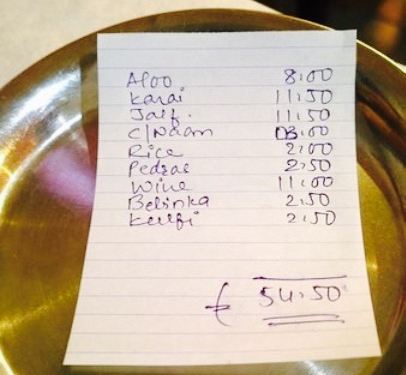 Aloo 8.00
Karai 11.50
Jalf. 11.50
C/Naam 03.00
Rice 2.00
Pedras 2.50
Wine 11.00
Belinka 2.50
Kulfi 2.50
£ 54.50